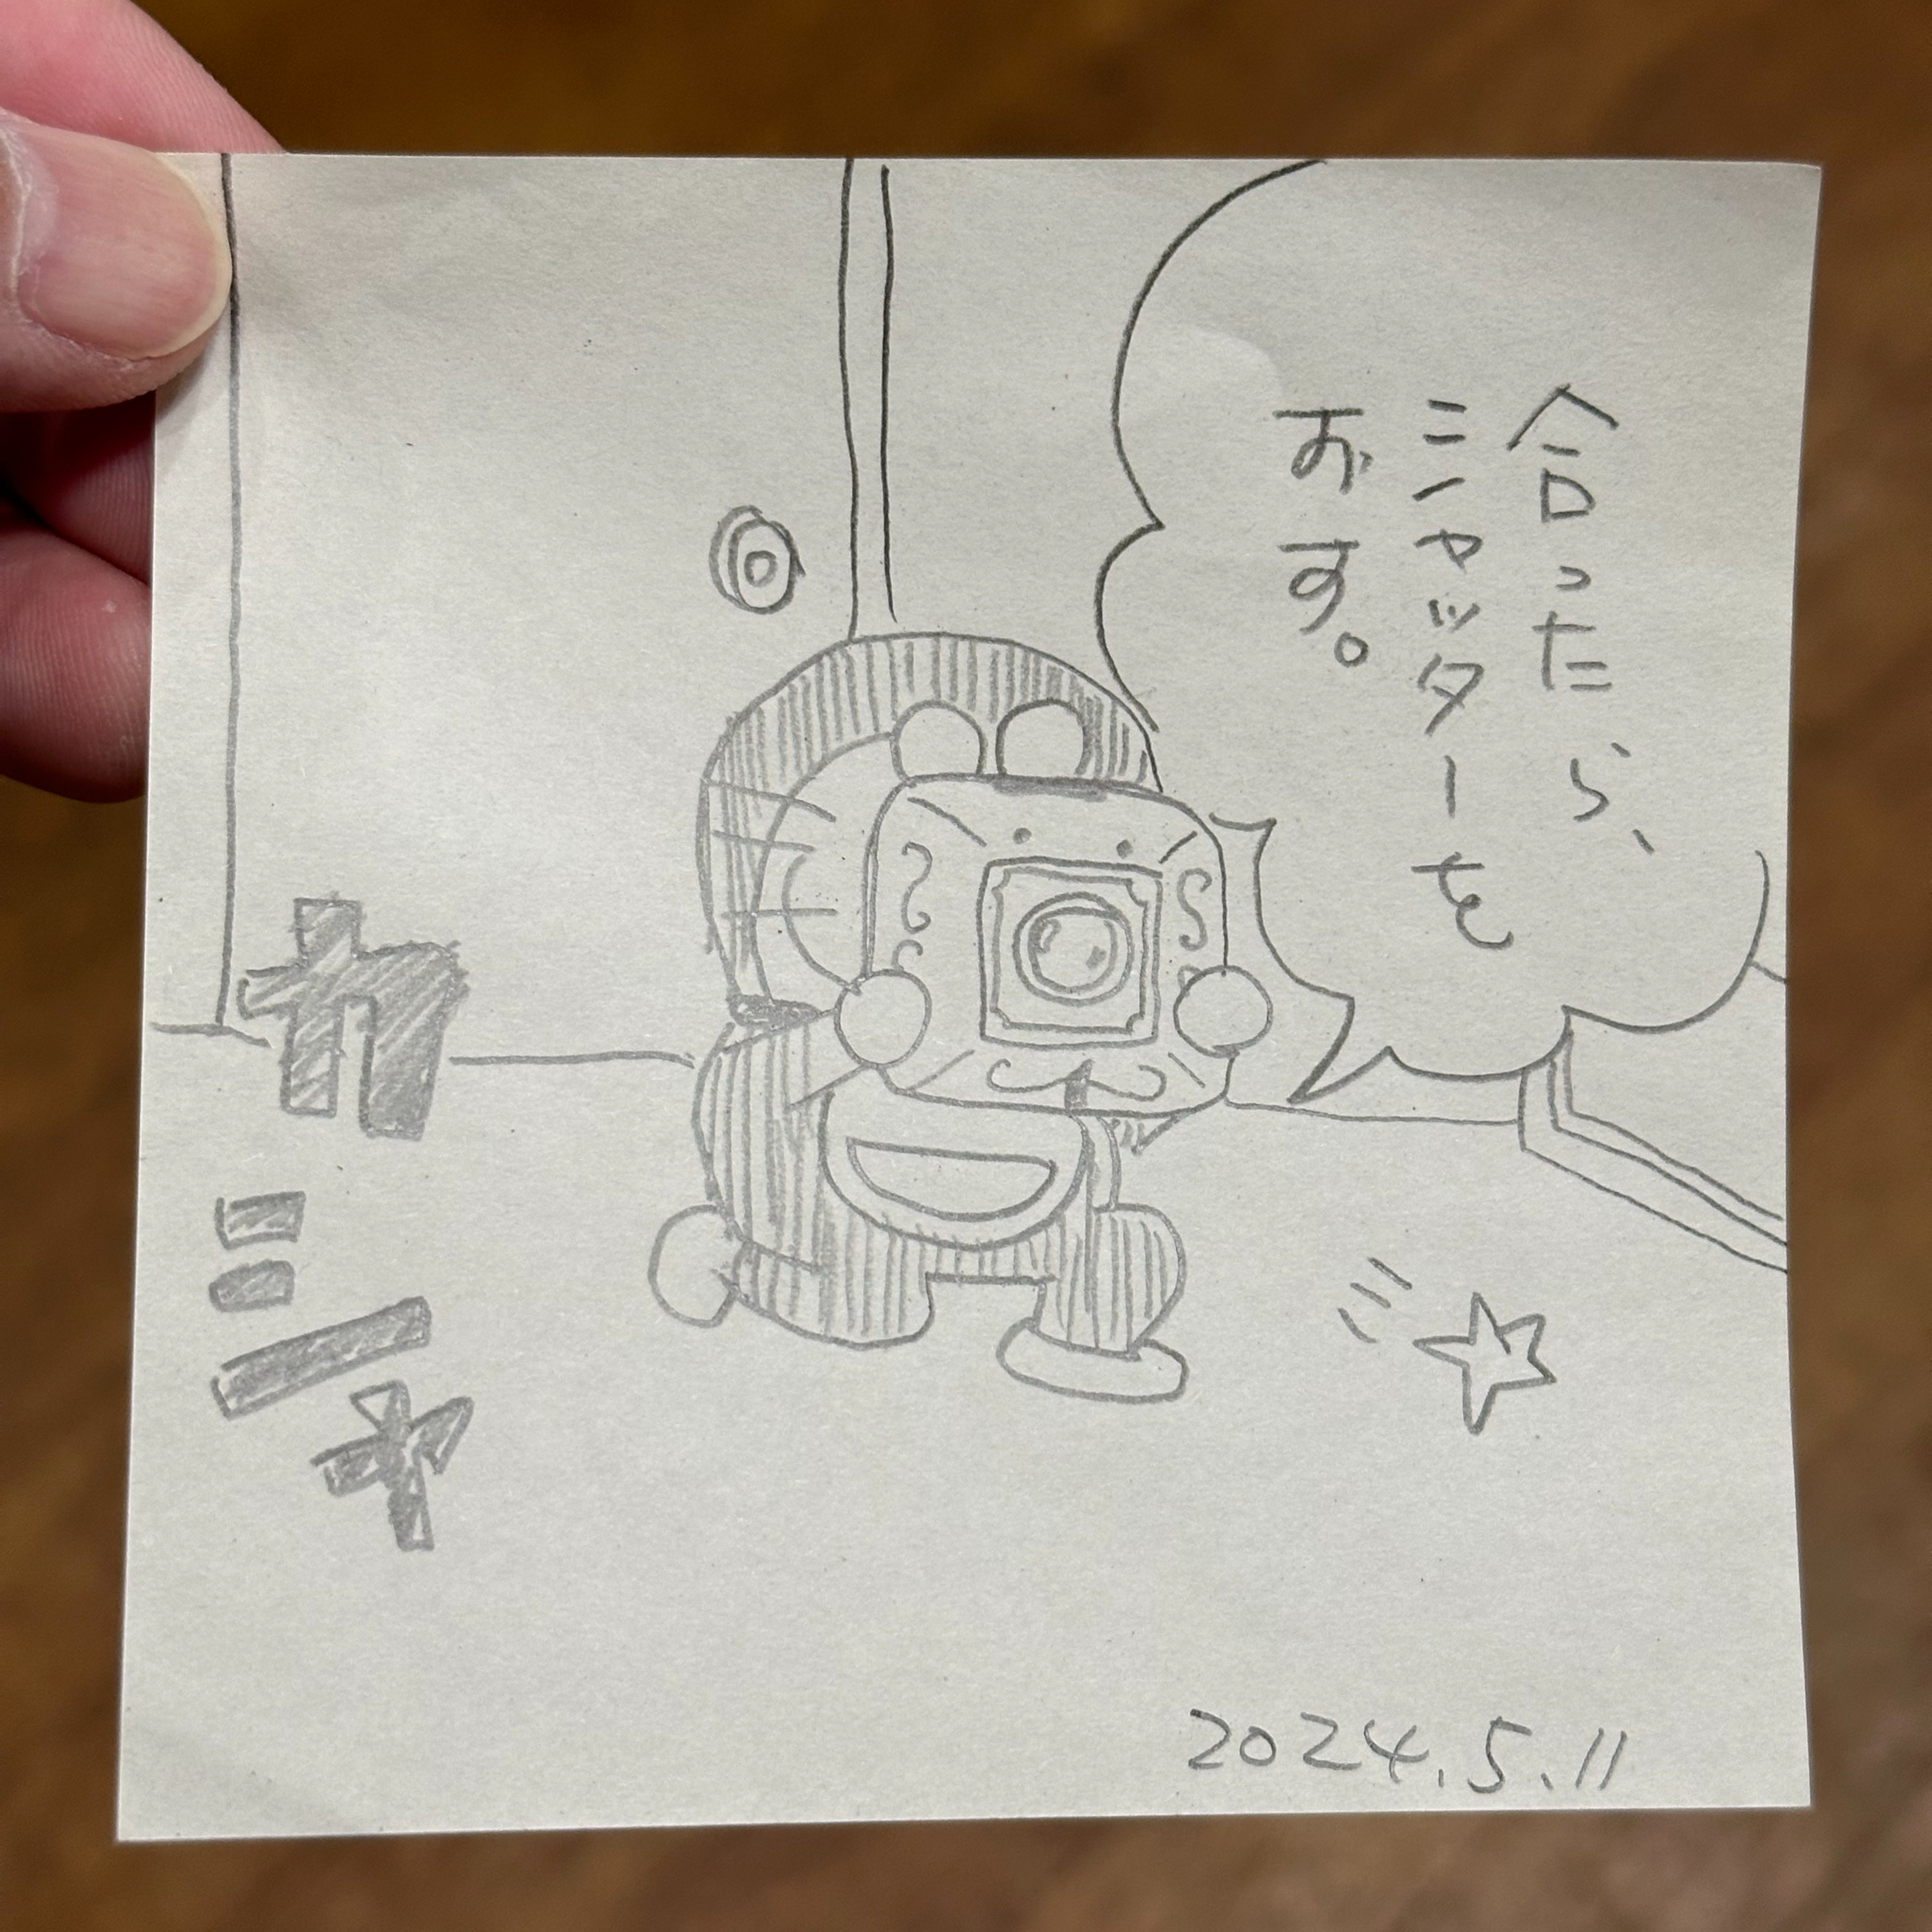 合ったら、
シャッターを
おす。
カシャ
2024.5.11